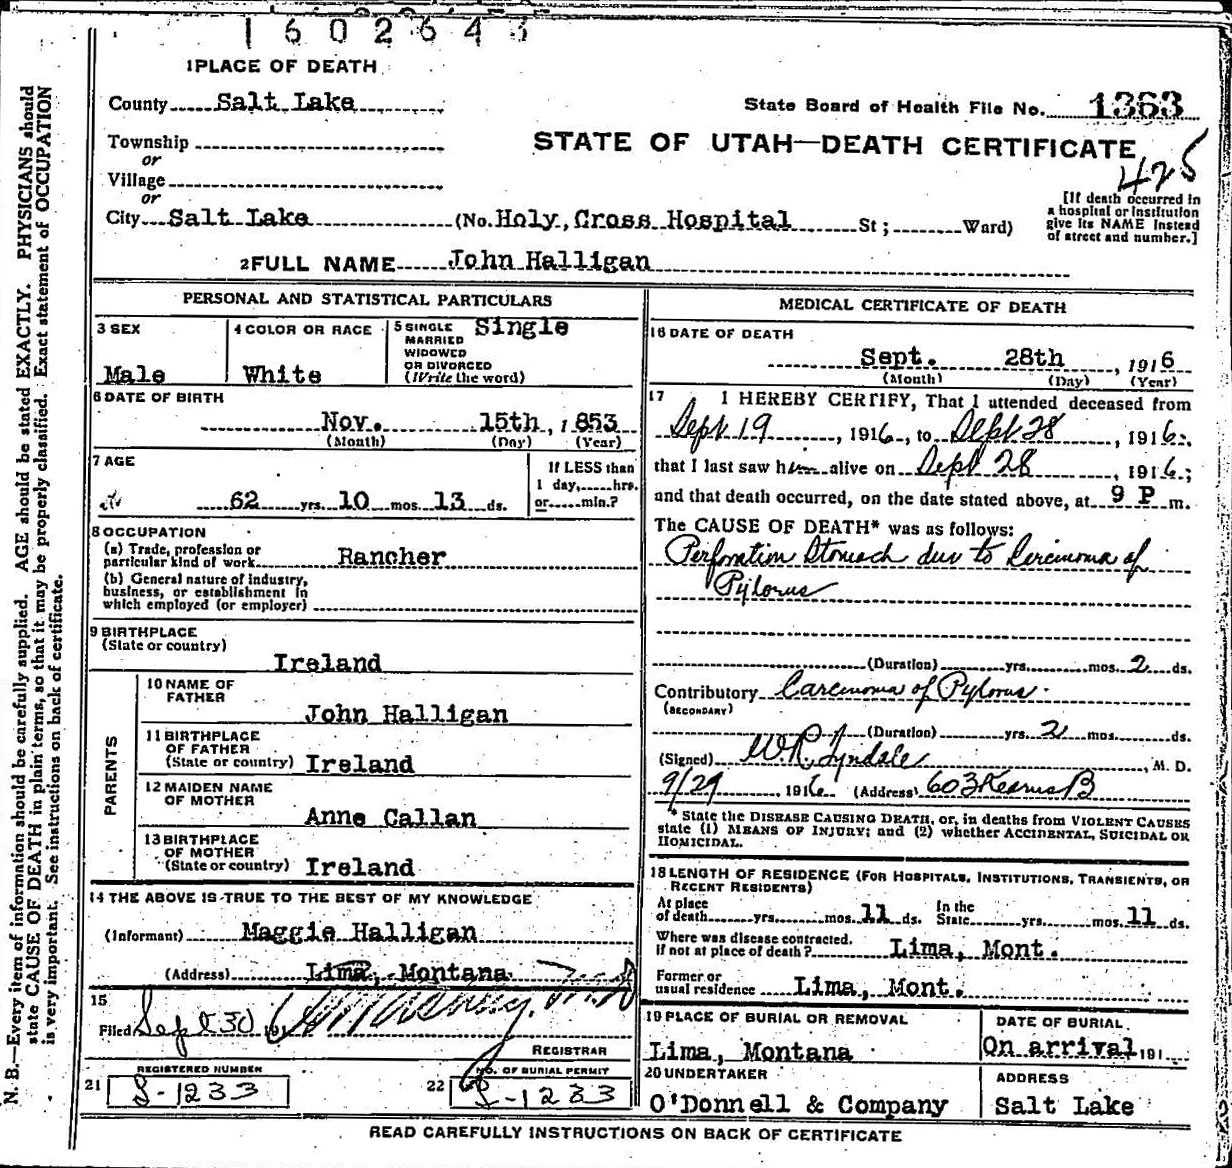 1602643
1 PLACE OF DEATH
County Salt Lake
State Board of Health File No. 1363
Township
or
STATE OF UTAH—DEATH CERTIFICATE
425
Village
or
City Salt Lake (No. Holy, Cross Hospital St; Ward)
[If death occurred in
a hospital or institution
give its NAME instead
of street and number.]
2 FULL NAME John Halligan
PERSONAL AND STATISTICAL PARTICULARS
3 SEX
Male
4 COLOR OR RACE
White
5 SINGLE Single
MARRIED
WIDOWED
OR DIVORCED
(Write the word)
6 DATE OF BIRTH
Nov. 15th, 1853
(Month) (Day) (Year)
7 AGE
62 yrs. 10 mos. 13 ds.
If LESS than
1 day, hrs.
or min.?
8 OCCUPATION
(a) Trade, profession or
particular kind of work Rancher
(b) General nature of industry,
business, or establishment in
which employed (or employer)
9 BIRTHPLACE
(State or country)
Ireland
PARENTS
10 NAME OF
FATHER
John Halligan
11 BIRTHPLACE
OF FATHER
(State or country) Ireland
12 MAIDEN NAME
OF MOTHER
Anne Callan
13 BIRTHPLACE
OF MOTHER
(State or country) Ireland
14 THE ABOVE IS TRUE TO THE BEST OF MY KNOWLEDGE
(Informant) Maggie Halligan
(Address) Lima, Montana
15
Filed Sept 30 191
REGISTRAR
REGISTERED NUMBER
21 S-1233
NO. OF BURIAL PERMIT
22 S-1233
MEDICAL CERTIFICATE OF DEATH
16 DATE OF DEATH
Sept. 28th, 1916
(Month) (Day) (Year)
17 I HEREBY CERTIFY, That I attended deceased from
Sept 19, 1916, to Sept 28, 1916;
that I last saw him alive on Sept 28, 1916;
and that death occurred, on the date stated above, at 9 P m.
The CAUSE OF DEATH* was as follows:
Perforation Stomach due to Carcinoma of
Pylorus
(Duration) yrs. mos. 2 ds.
Contributory Carcinoma of Pylorus.
(SECONDARY)
(Duration) yrs. 2 mos. ds.
(Signed) W.R. Tyndale, M. D.
9/29, 1916 (Address) 603 Kearns B
* State the DISEASE CAUSING DEATH, or, in deaths from VIOLENT CAUSES
state (1) MEANS OF INJURY; and (2) whether ACCIDENTAL, SUICIDAL OR
HOMICIDAL.
18 LENGTH OF RESIDENCE (FOR HOSPITALS, INSTITUTIONS, TRANSIENTS, OR
RECENT RESIDENTS)
At place
of death yrs. mos. 11 ds.
In the
State yrs. mos. 11 ds.
Where was disease contracted,
if not at place of death? Lima, Mont.
Former or
usual residence Lima, Mont.
19 PLACE OF BURIAL OR REMOVAL
Lima, Montana
DATE OF BURIAL
On arrival 191
20 UNDERTAKER
O'Donnell & Company
ADDRESS
Salt Lake
READ CAREFULLY INSTRUCTIONS ON BACK OF CERTIFICATE
N. B.—Every item of information should be carefully supplied. AGE should be stated EXACTLY. PHYSICIANS should
state CAUSE OF DEATH in plain terms, so that it may be properly classified. Exact statement of OCCUPATION
is very important. See instructions on back of certificate.